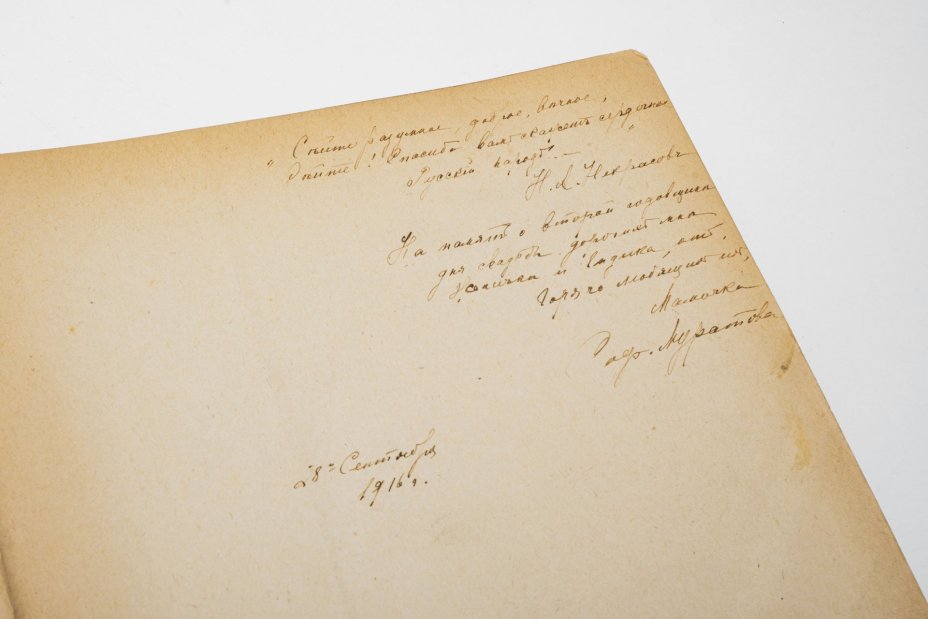 „ Сѣйте разумное, доброе, вѣчное,
Сѣйте! Спасибо вамъ скажетъ сердечное
Русскій народъ. — "
Н. А. Некрасовъ
На память о второй годовщинѣ
дня свадьбы дорогихъ мнѣ
и отъ
горячо любящей ихъ,
Мамочки
Муратова
28го Сентября
1916 г.